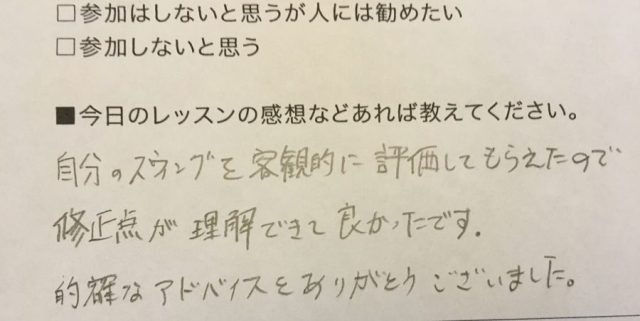 □参加はしないと思うが人には勧めたい
□参加しないと思う
■今日のレッスンの感想などあれば教えてください。
自分のスウィングを客観的に評価してもらえたので
修正点が理解できて良かったです.
的確なアドバイスをありがとうございました。